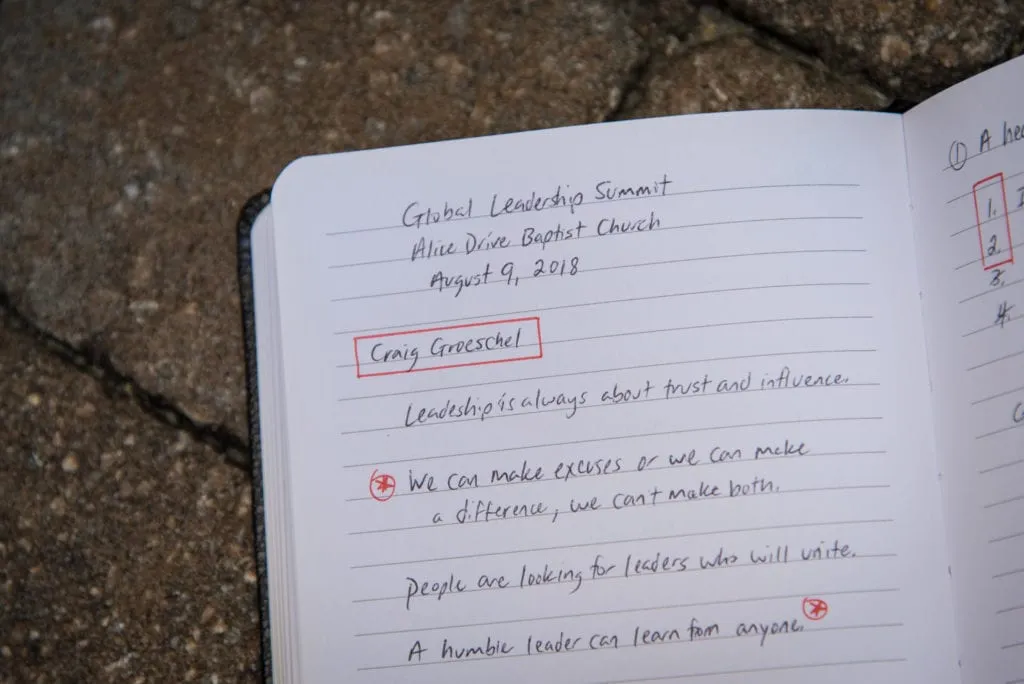 Global Leadership Summit
Alice Drive Baptist Church
August 9, 2018
Craig Groeschel
Leadeship is always about trust and influence.
We can make excuses or we can make
a difference, we can't make both.
People are looking for leaders who will unite.
A humble leader can learn from anyone.
① A
1.
2.
3.
4.